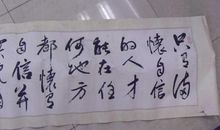 只有满
懷自信
的人才
能在任
何地方
都懷有
自信并